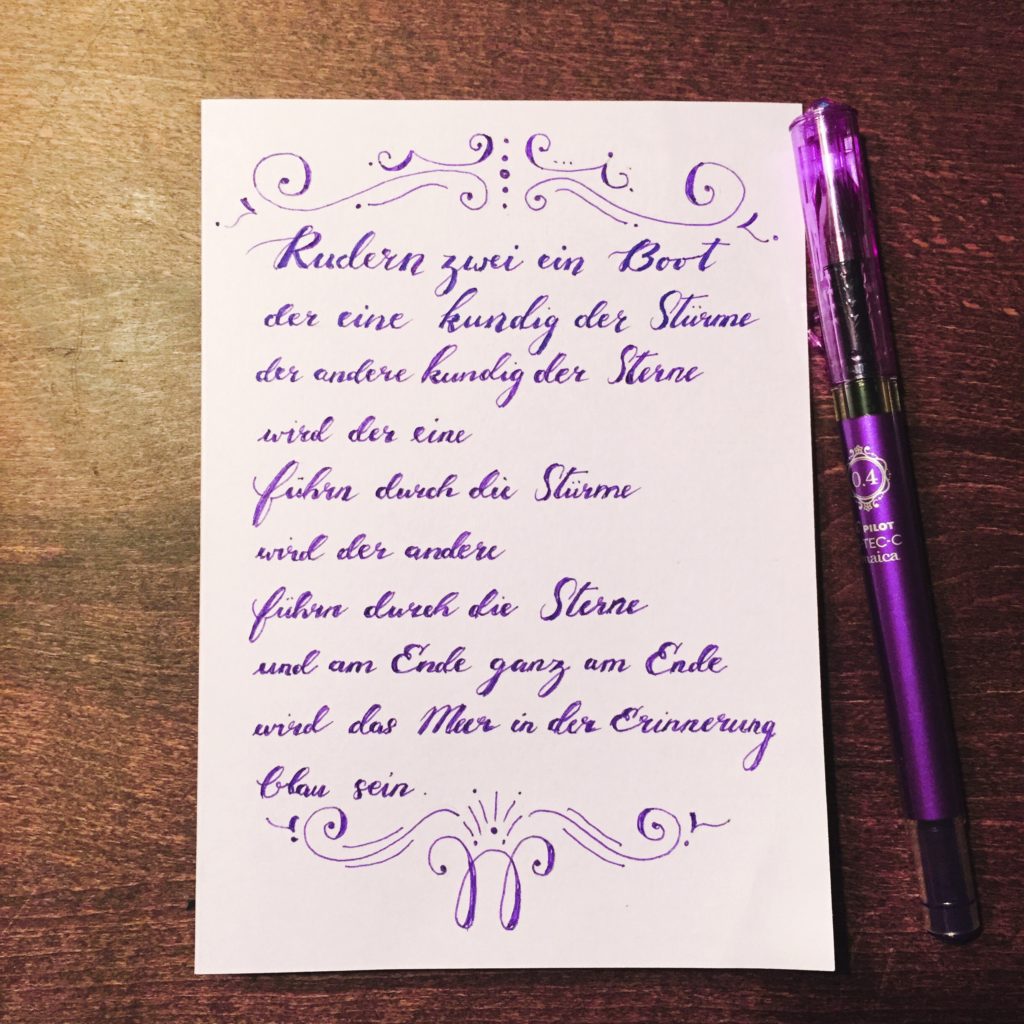 Rudern zwei ein Boot
der eine kundig der Stürme
der andere kundig der Sterne
wird der eine
führn durch die Stürme
wird der andere
führn durch die Sterne
und am Ende ganz am Ende
wird das Meer in der Erinnerung
blau sein.
0.4
PILOT
TEC-C